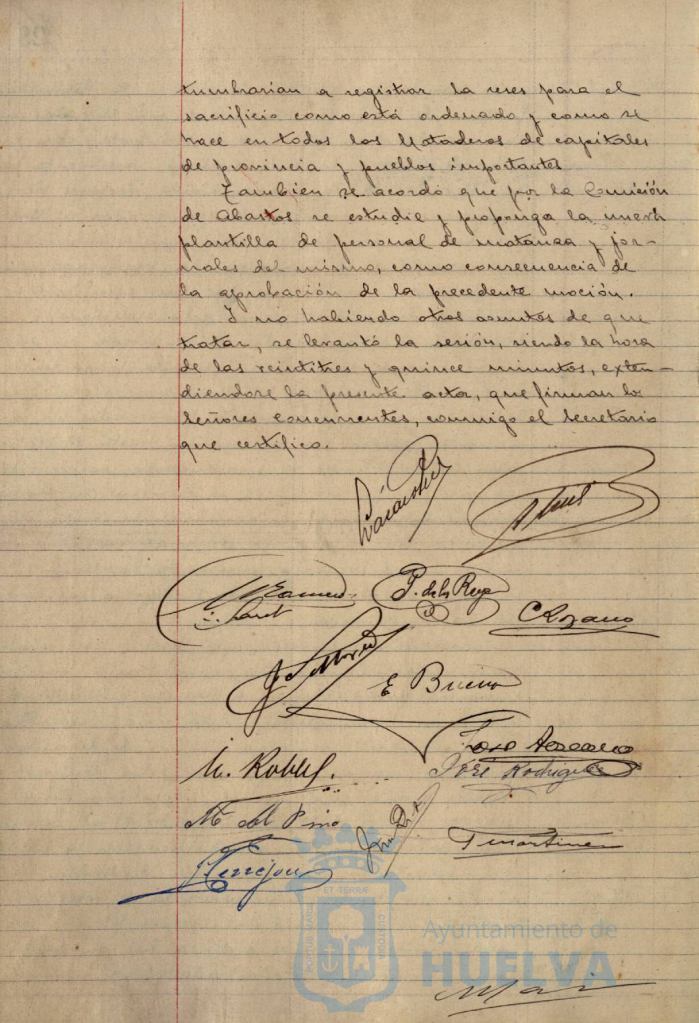 tumbrarian a registrar la reses para el
sacrificio como está ordenado y como se
hace en todos los Mataderos de capitales
de provincia y pueblos importantes
Tambien se acordó que por la Comisión
de Abastos se estudie y proponga la nueva
plantilla de personal de matanza y jor-
nales del mismo, como consecuencia de
la aprobación de la precedente moción.
Y no habiendo otros asuntos de que
tratar, se levantó la sesión, siendo la hora
de las veintitres y quince minutos, exten-
diendose la presente acta, que firman los
señores concurrentes, conmigo el Secretario
que certifico.
P. de la Rosa
C Lozano
E Bueno
M. Robles.
José Rodriguez
M. del Pino
T Martinez
Terrejon
PORTUS MARIS ET TERRÆ CUSTODIA
Ayuntamiento de
HUELVA